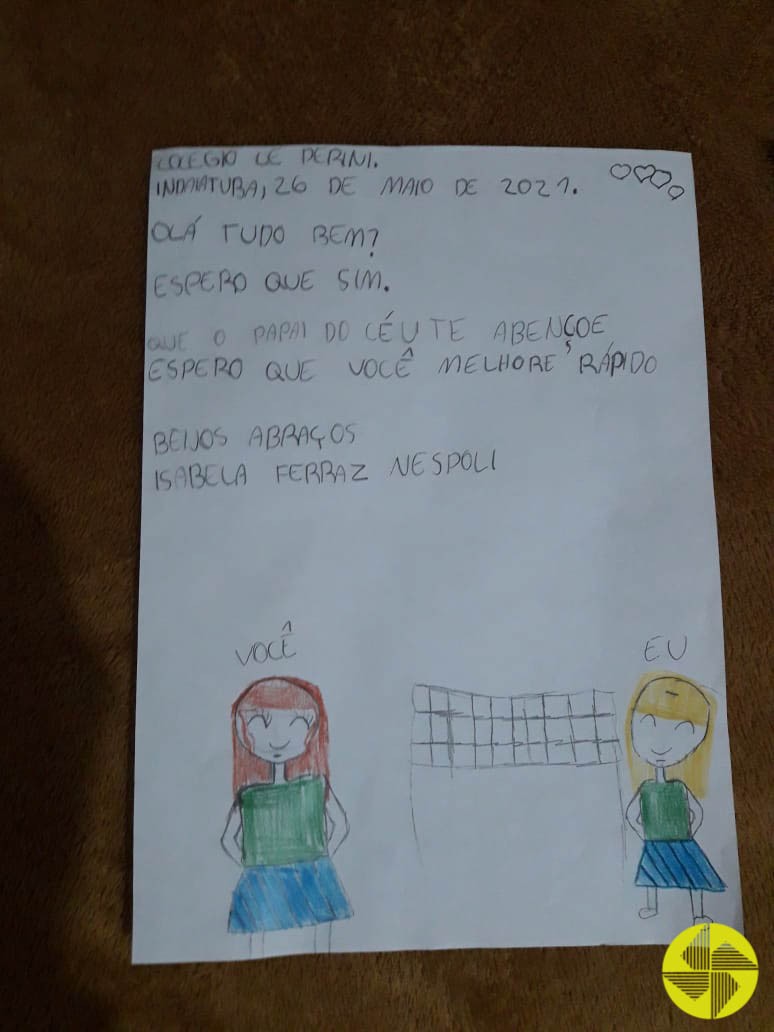 COLEGIO LE PERINI.
INDAIATUBA, 26 DE MAIO DE 2021.
OLÁ TUDO BEM?
ESPERO QUE SIM.
QUE O PAPAI DO CÉU TE ABENÇOE
ESPERO QUE VOCÊ MELHORE RÁPIDO
BEIJOS ABRAÇOS
ISABELA FERRAZ NESPOLI
VOCÊ
EU